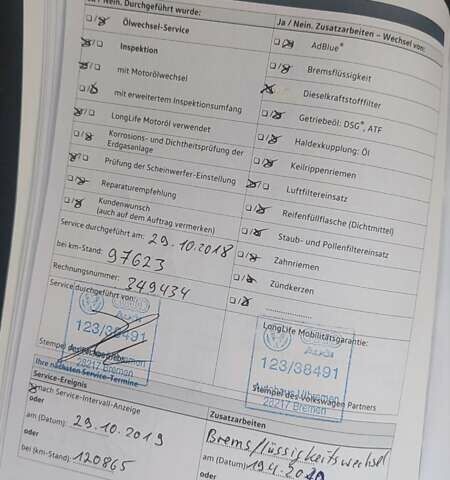 Ja / Nein. Durchgeführt wurde:
Ölwechsel-Service
Inspektion
mit Motorölwechsel
mit erweitertem Inspektionsumfang
LongLife Motoröl verwendet
Korrosions- und Dichtheitsprüfung der
Erdgasanlage
Prüfung der Scheinwerfer-Einstellung
Reparaturempfehlung
Kundenwunsch
(auch auf dem Auftrag vermerken)
Service durchgeführt am: 29.10.2018
bei km-Stand: 97623
Rechnungsnummer: 349434
Service durchgeführt von:
Audi
123/38491
Stempel des
28217 Bremen
Ihre nächsten Service-Termine
Service-Ereignis
nach Service-Intervall-Anzeige
oder
am (Datum): 29.10.2019
oder
bei (km-Stand): 120865
Ja / Nein. Zusatzarbeiten – Wechsel von:
AdBlue®
Bremsflüssigkeit
Dieselkraftstofffilter
Getriebeöl: DSG®, ATF
Haldexkupplung: Öl
Keilrippenriemen
Luftfiltereinsatz
Reifenfüllflasche (Dichtmittel)
Staub- und Pollenfiltereinsatz
Zahnriemen
Zündkerzen
LongLife Mobilitätsgarantie:
Audi
123/38491
Stempel des Volkswagen Partners
28217 Bremen
Zusatzarbeiten
Bremsflüssigkeitswechsel
am (Datum):
oder